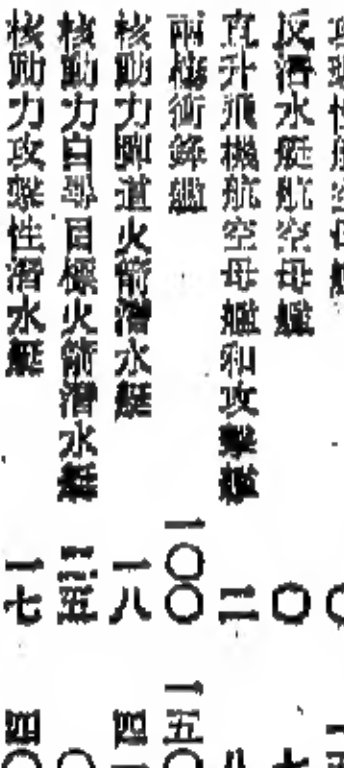 攻擊性航空母艦 〇
反潛水艇航空母艦 〇 七
直升飛機航空母艦和攻擊艦 二 八
兩棲銜鋒艦 一〇〇 一五〇
核動力彈道火箭潛水艇 一八 四一
核動力自尋目標火箭潛水艇 三五 〇
核動力攻擊性潛水艇 一七 四〇